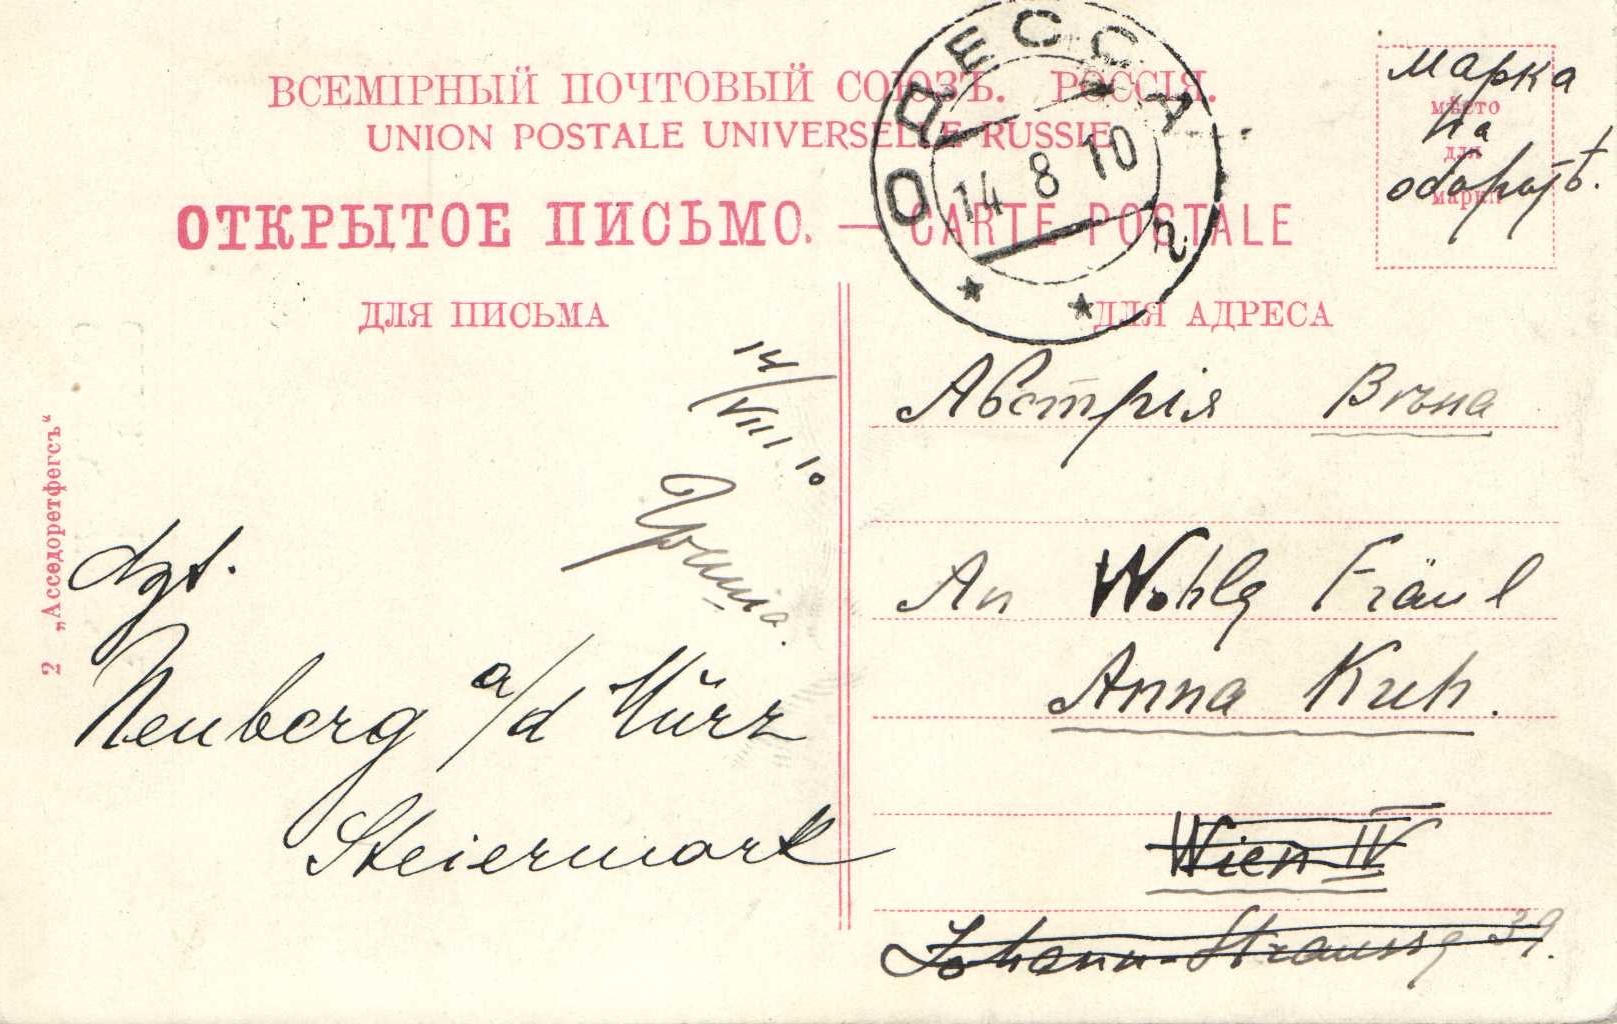 ВСЕМІРНЫЙ ПОЧТОВЫЙ СОЮЗЪ. РОССІЯ.
UNION POSTALE UNIVERSELLE RUSSIE
ОТКРЫТОЕ ПИСЬМО. — CARTE POSTALE
ОДЕССА
14 8 10
2
мѣсто
для
марки
Марка
на
оборотѣ.
ДЛЯ ПИСЬМА
ДЛЯ АДРЕСА
14/VIII 10
dzt.
Neuberg a/d Mürz
Steiermark
2 „Асседоретфегсъ“
Австрія Вѣна
An Wohlg Fräul
Anna Kuh.
Wien IV
Johann-Straussg 39.